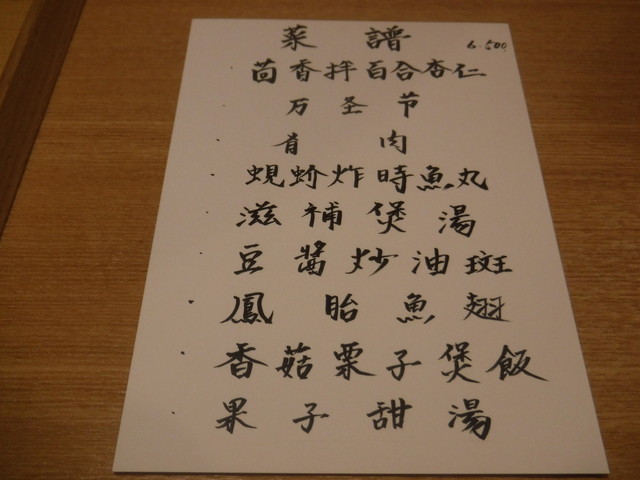 菜譜 6.500
茴香拌百合杏仁
万圣节
肴肉
蜆蚧炸時魚丸
滋補煲湯
豆醬炒油斑
鳳胎魚翅
香菇栗子煲飯
果子甜湯